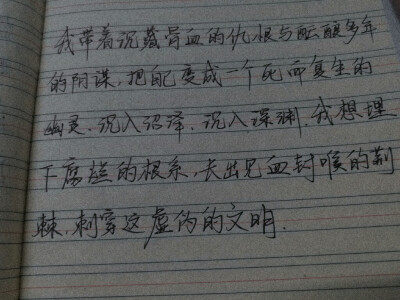 我带着沉藏骨血的仇恨与酝酿多年
的阴谋,把自己变成一个死而复生的
幽灵,沉入沼泽,沉入深渊,我想埋
下腐烂的根系,长出见血封喉的荆
棘,刺穿这虚伪的文明.